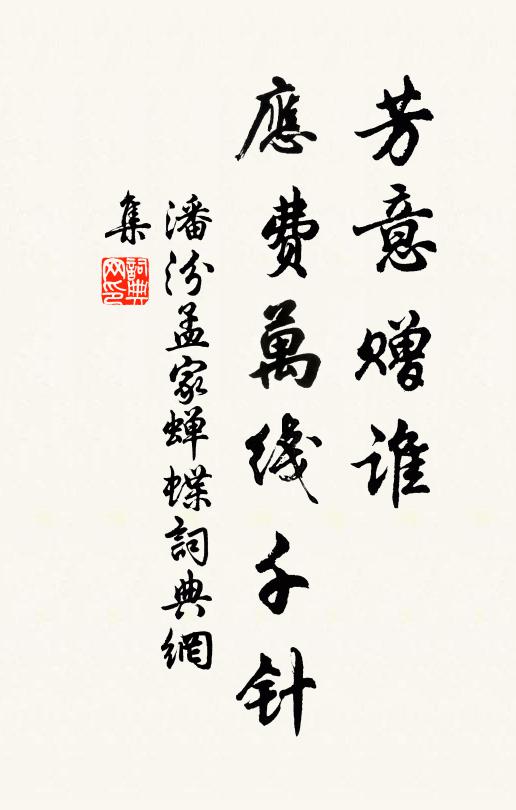 芳意赠谁
應費萬线千针
潘汾孟家蝉蝶詞典網
集
詞典网印